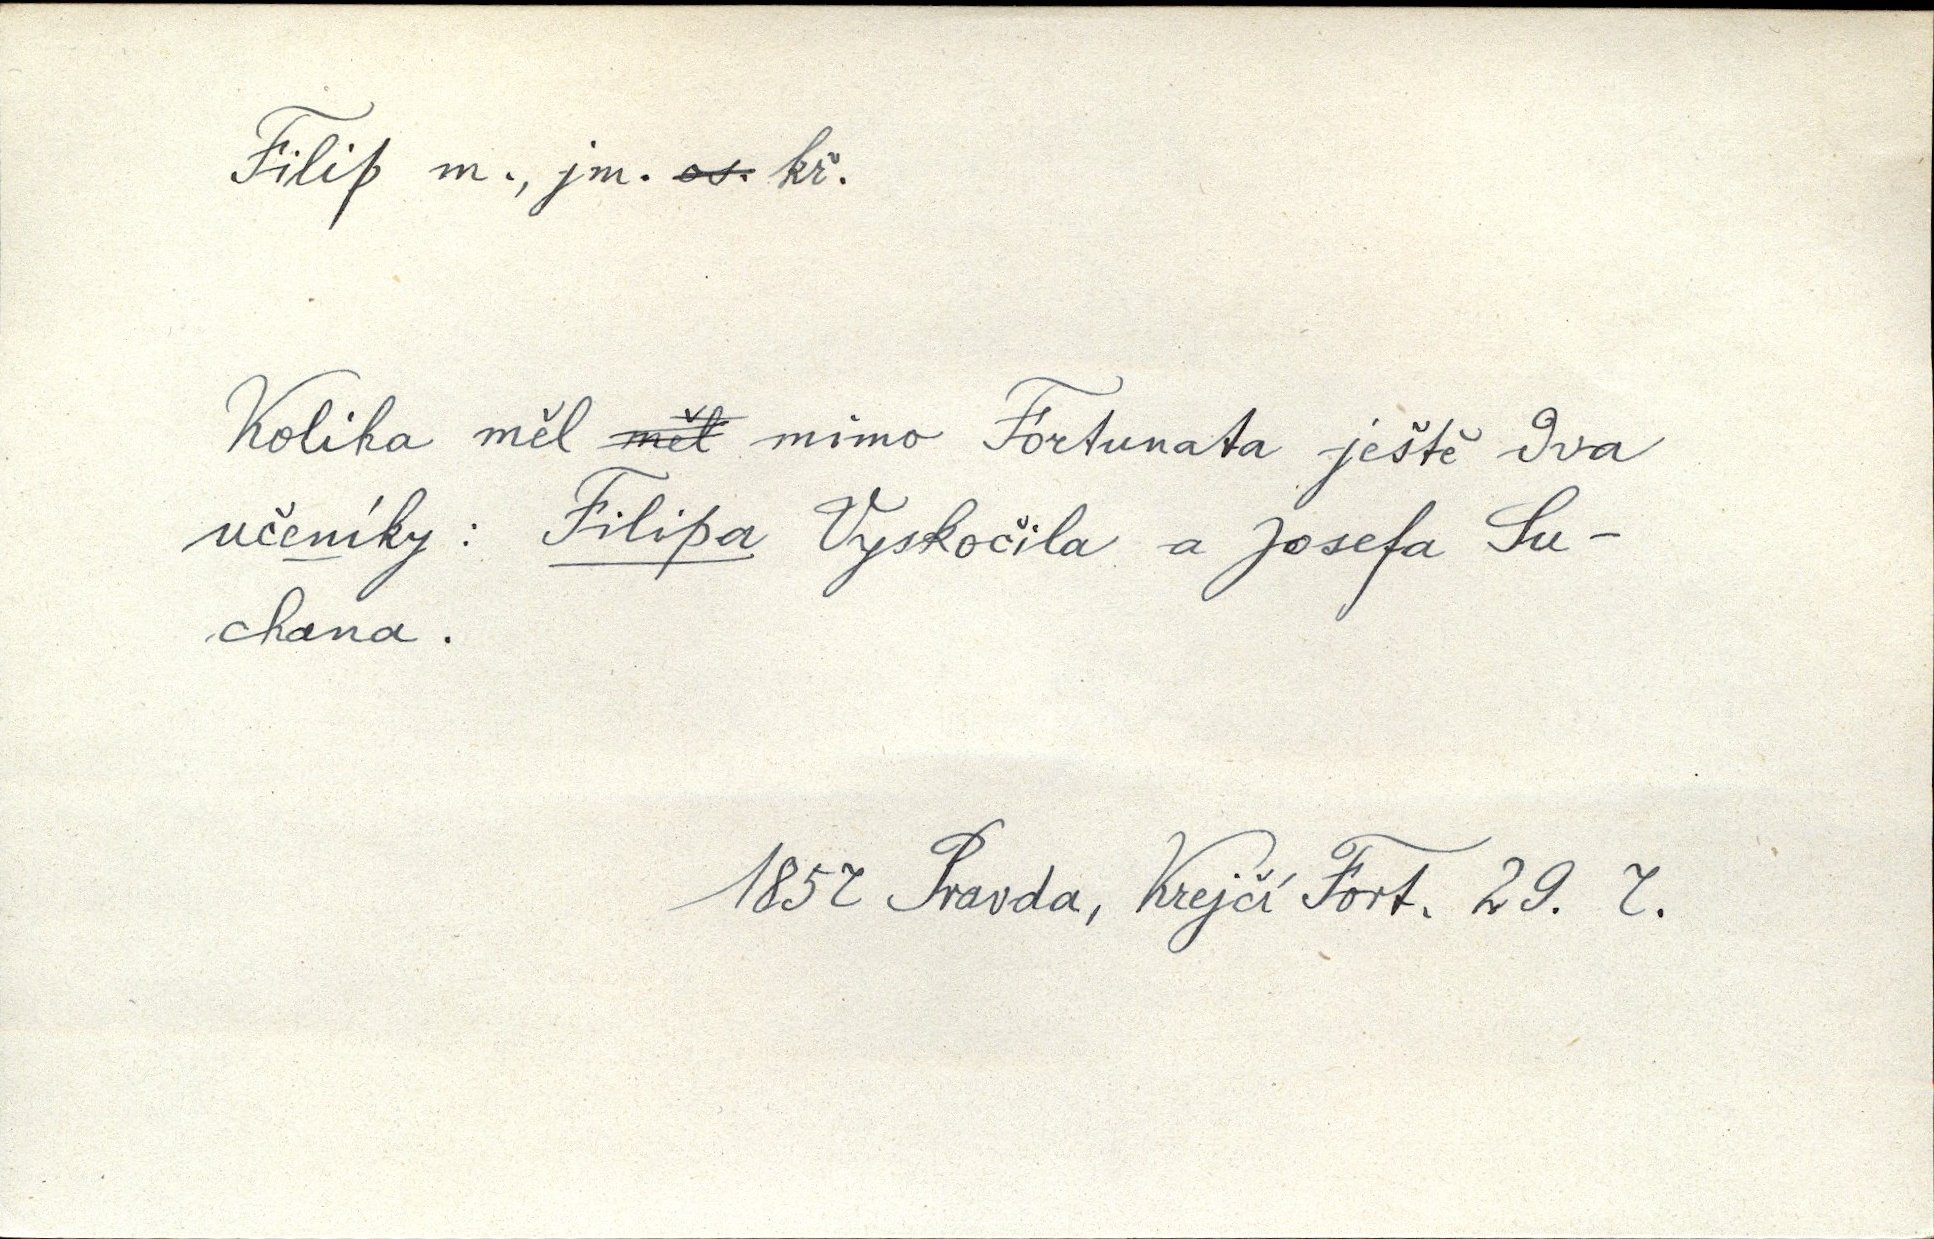 Filip m., jm. os. kř.
Kolika měl měl mimo Fortunata ještě dva
učeníky: Filipa Vyskočila a Josefa Su-
chana.
1857 Pravda, Krejčí Fort. 29. 7.